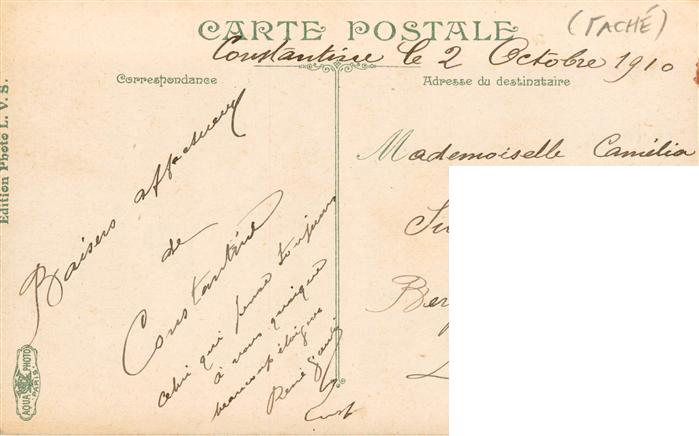 CARTE POSTALE
(TACHÉ)
Constantine le 2 Octobre 1910
Correspondance
Adresse du destinataire
Edition Photo L. V. S.
Baisers affectueux
de
Constantine
celui qui pense toujours
à vous quoique
beaucoup éloigné
René
Mademoiselle Camélia
AQUA PHOTO
PARIS